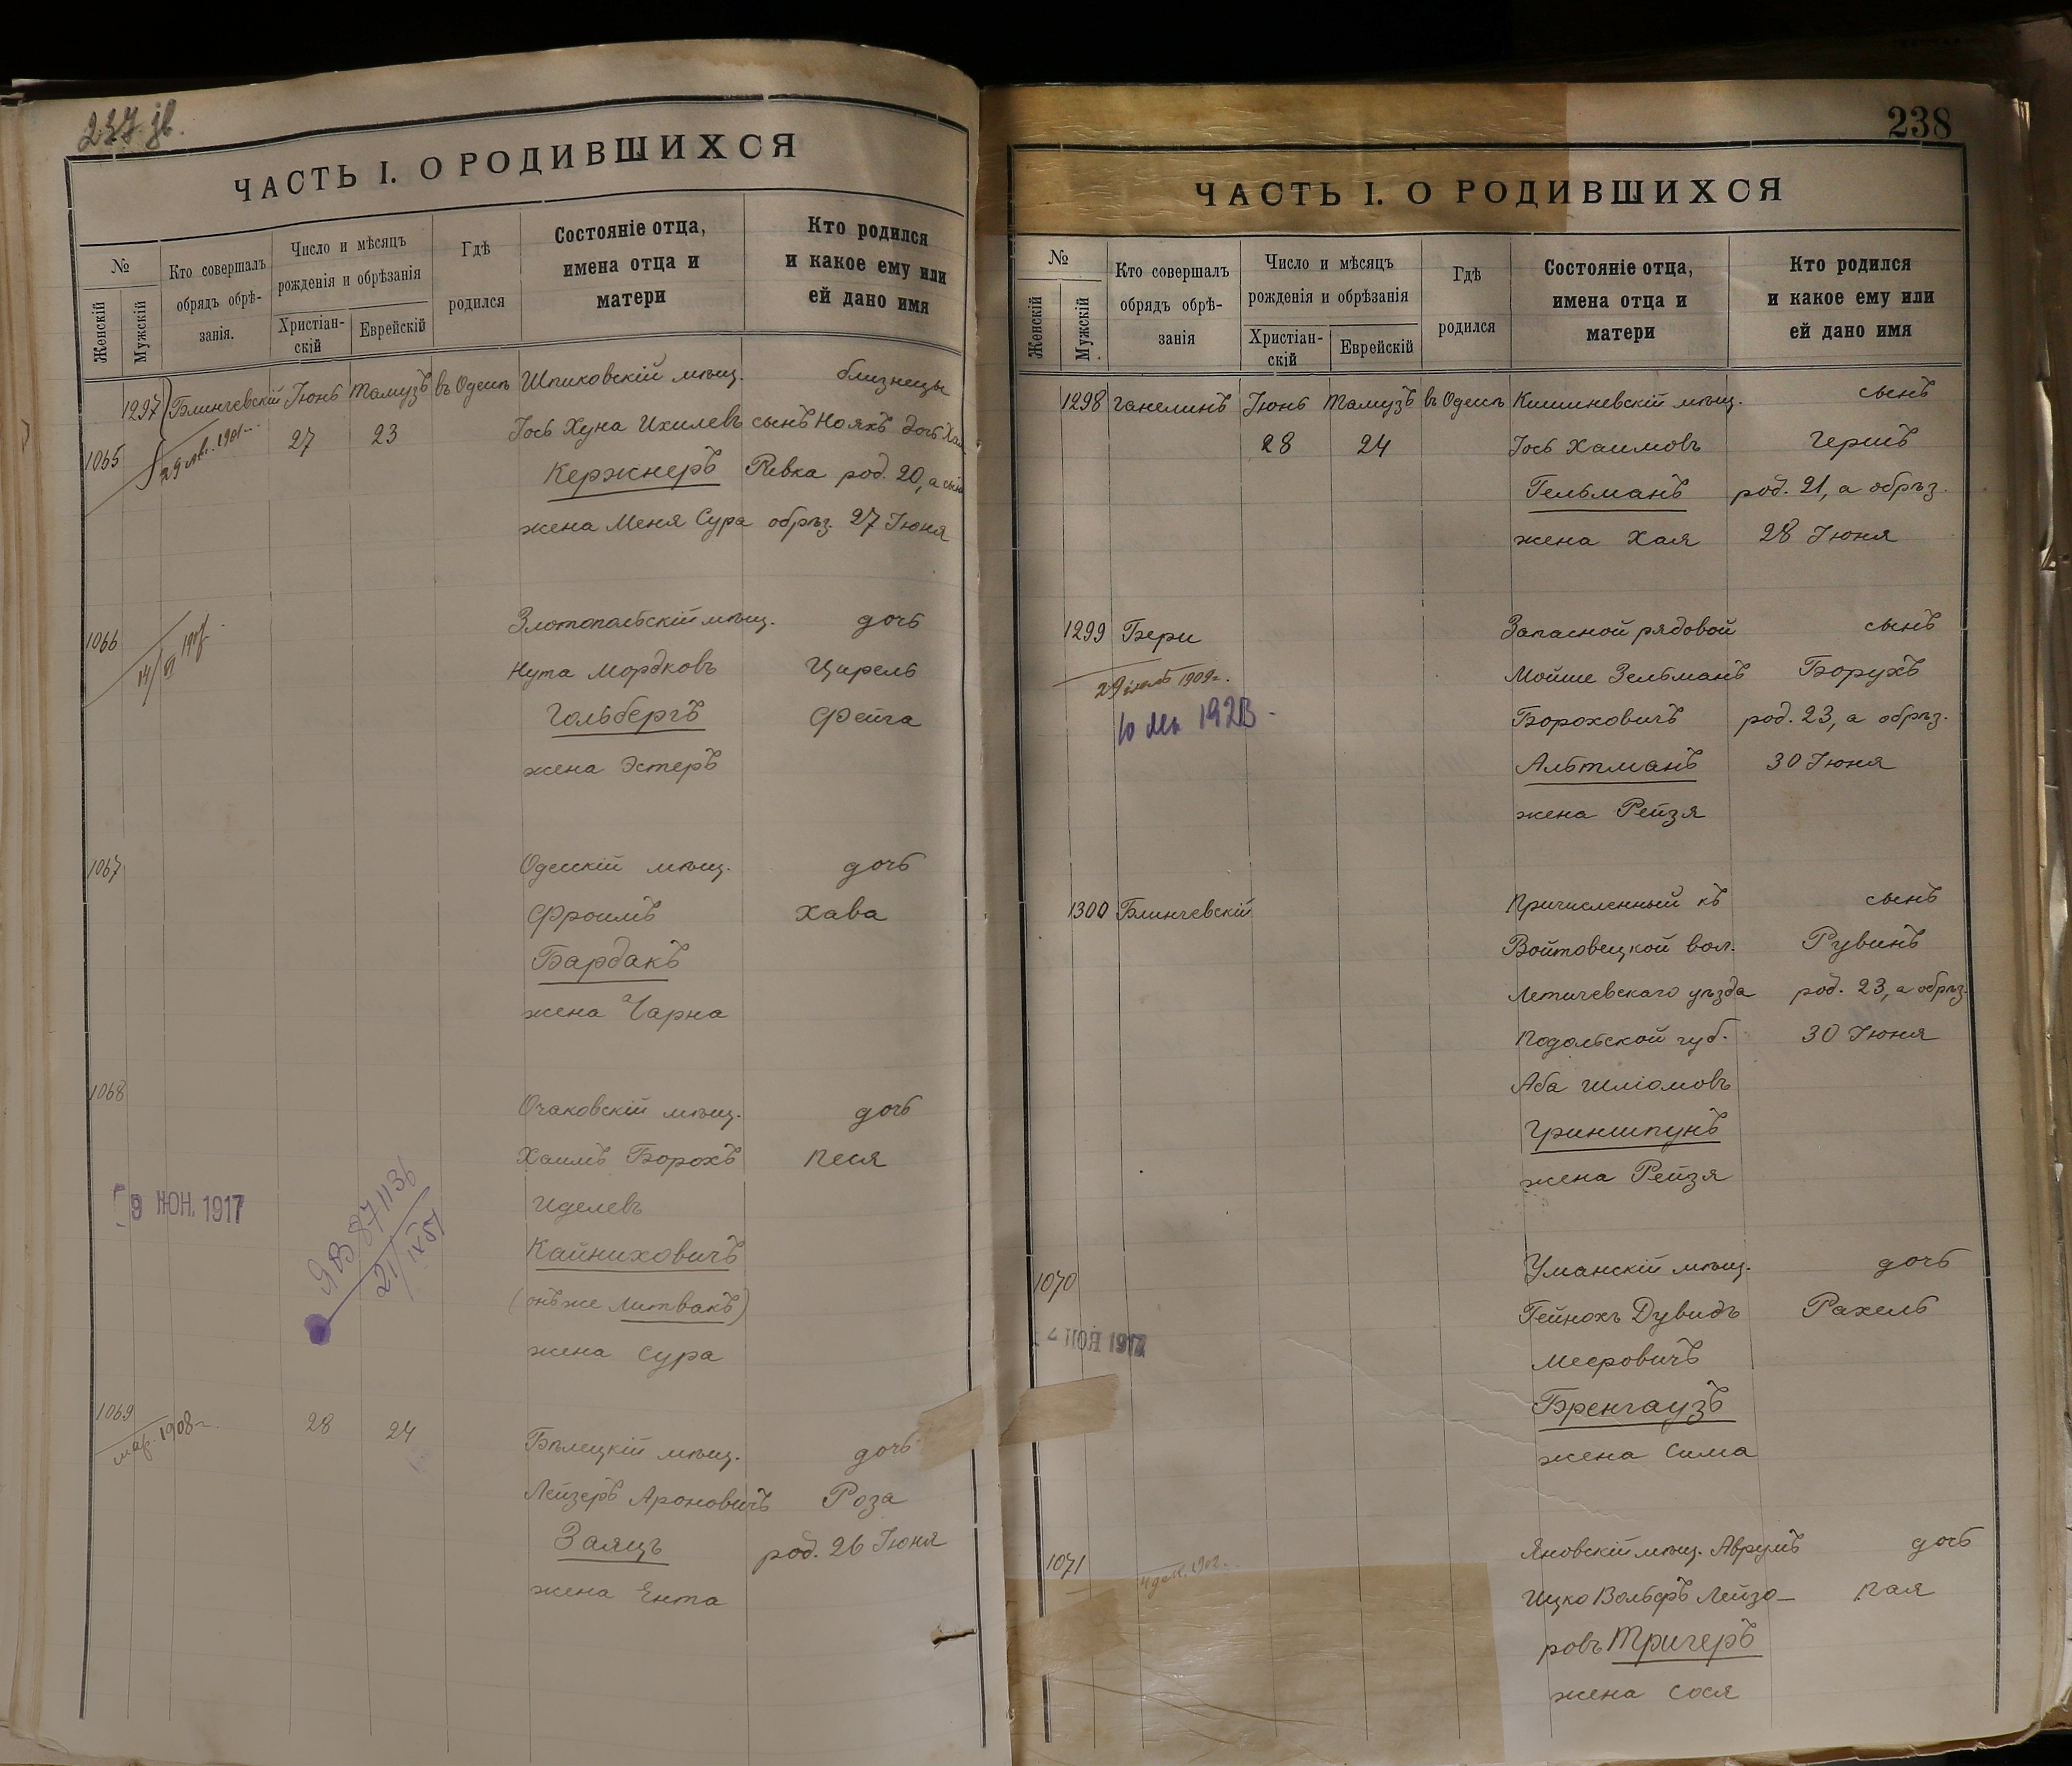 237 об.
ЧАСТЬ I. О РОДИВШИХСЯ
№
Женскій
Мужскій
Кто совершалъ обрядъ обрѣ-занія.
Число и мѣсяцъ рожденія и обрѣзанія
Христіан-скій
Еврейскій
Гдѣ родился
Состояніе отца, имена отца и матери
Кто родился и какое ему или ей дано имя
1297 Блинчевскій Іюнь Тамузъ въ Одессѣ Шпиковскій мѣщ. близнецы
1065 27 23 Іось Хуна Ихилевъ сынъ Нояхъ дочь
Кержнеръ Ривка род. 20, а сынъ
жена Меня Сура обрѣз. 27 Іюня
1066 Златопольскій мѣщ. дочь
14/VI
Нута Мордковъ Цирель
Гольбергъ Фейга
жена Эстеръ
1067 Одесскій мѣщ. дочь
Фроимъ Хава
Бардакъ
жена Чарна
1068
Очаковскій мѣщ. дочь
Хаимъ Борохъ Песя
9 ИЮН. 1917
ЯВ 871136
21/IX 51
Иделевъ
Кайниховичъ
(онъ же Литвакъ)
жена Сура
1069 28 24
мар. 1908 г.
Бѣлецкій мѣщ. дочь
Лейзеръ Ароновичъ Роза
Заяцъ род. 26 Іюня
жена Ента
238
ЧАСТЬ I. О РОДИВШИХСЯ
№
Женскій
Мужскій
Кто совершалъ обрядъ обрѣ-занія
Число и мѣсяцъ рожденія и обрѣзанія
Христіан-скій
Еврейскій
Гдѣ родился
Состояніе отца, имена отца и матери
Кто родился и какое ему или ей дано имя
1298 Ганелинъ Іюнь Тамузъ въ Одессѣ Кишиневскій мѣщ. сынъ
28 24 Іось Хаимовъ Гершъ
Гельманъ род. 21, а обрѣз.
жена Хая 28 Іюня
1299 Бери Запасной рядовой сынъ
29 1909 г. Мойше Зельманъ Борухъ
Бороховичъ род. 23, а обрѣз.
Альтманъ 30 Іюня
жена Рейзя
1300 Блинчевскій Причисленный къ сынъ
Войтовецкой вол. Рувинъ
Летичевскаго уѣзда род. 23, а обрѣз.
Подольской губ. 30 Іюня
Аба Шліомовъ
Гриншпунъ
жена Рейзя
1070 Уманскій мѣщ. дочь
Гейнохъ Дувидъ Рахель
1917
Мееровичъ
Бренгаузъ
жена Сима
1071 Яновскій мѣщ. Аврумъ дочь
4 дек. 1902 г.
Ицко Вольфъ Лейзо- Пая
ровъ Тригеръ
жена Сося